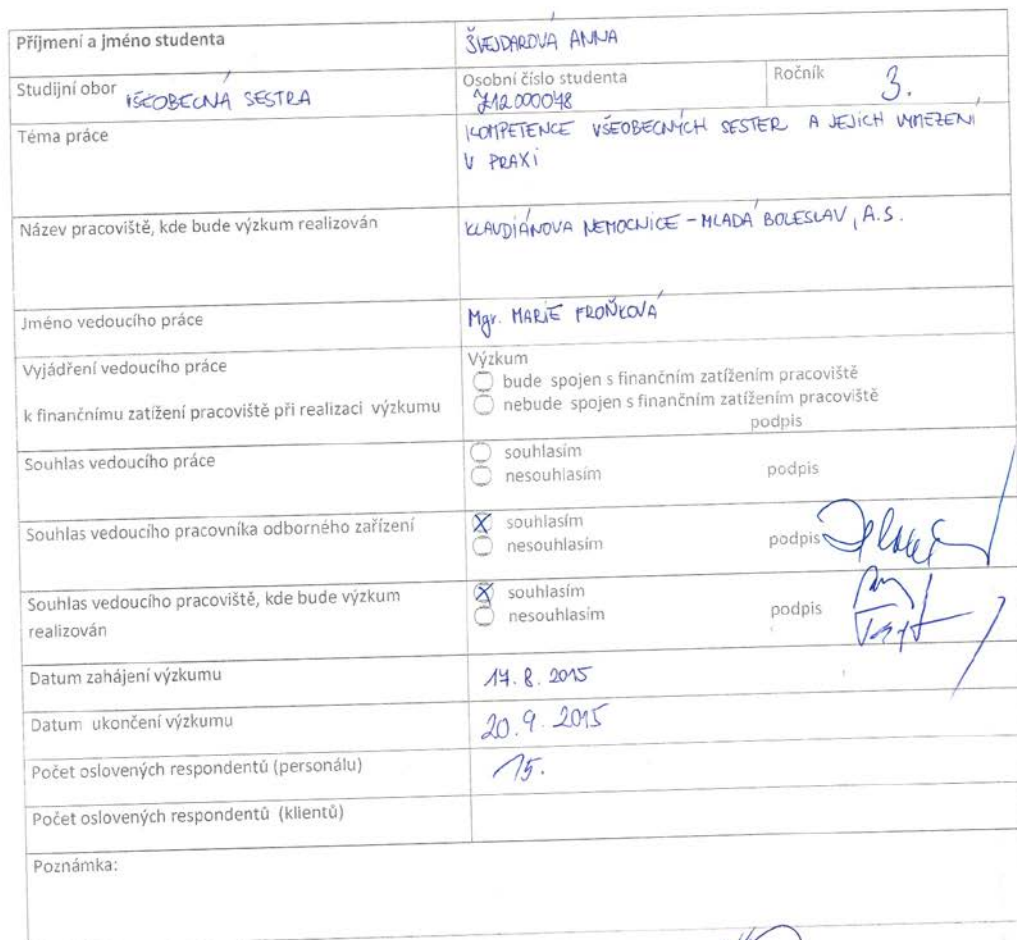 Příjmení a jméno studenta
ŠVEJDAROVÁ ANNA
Studijní obor VŠEOBECNÁ SESTRA
Osobní číslo studenta
Z12000048
Ročník 3.
Téma práce
KOMPETENCE VŠEOBECNÝCH SESTER A JEJICH VYMEZENÍ
V PRAXI
Název pracoviště, kde bude výzkum realizován
KLAUDIÁNOVA NEMOCNICE - MLADÁ BOLESLAV, A.S.
Jméno vedoucího práce
Mgr. MARIE FROŇKOVÁ
Vyjádření vedoucího práce
k finančnímu zatížení pracoviště při realizaci výzkumu
Výzkum
bude spojen s finančním zatížením pracoviště
nebude spojen s finančním zatížením pracoviště
podpis
Souhlas vedoucího práce
souhlasím
nesouhlasím podpis
Souhlas vedoucího pracovníka odborného zařízení
X souhlasím
nesouhlasím podpis
Souhlas vedoucího pracoviště, kde bude výzkum
realizován
X souhlasím
nesouhlasím podpis
Datum zahájení výzkumu
17. 8. 2015
Datum ukončení výzkumu
20. 9. 2015
Počet oslovených respondentů (personálu)
15.
Počet oslovených respondentů (klientů)
Poznámka: